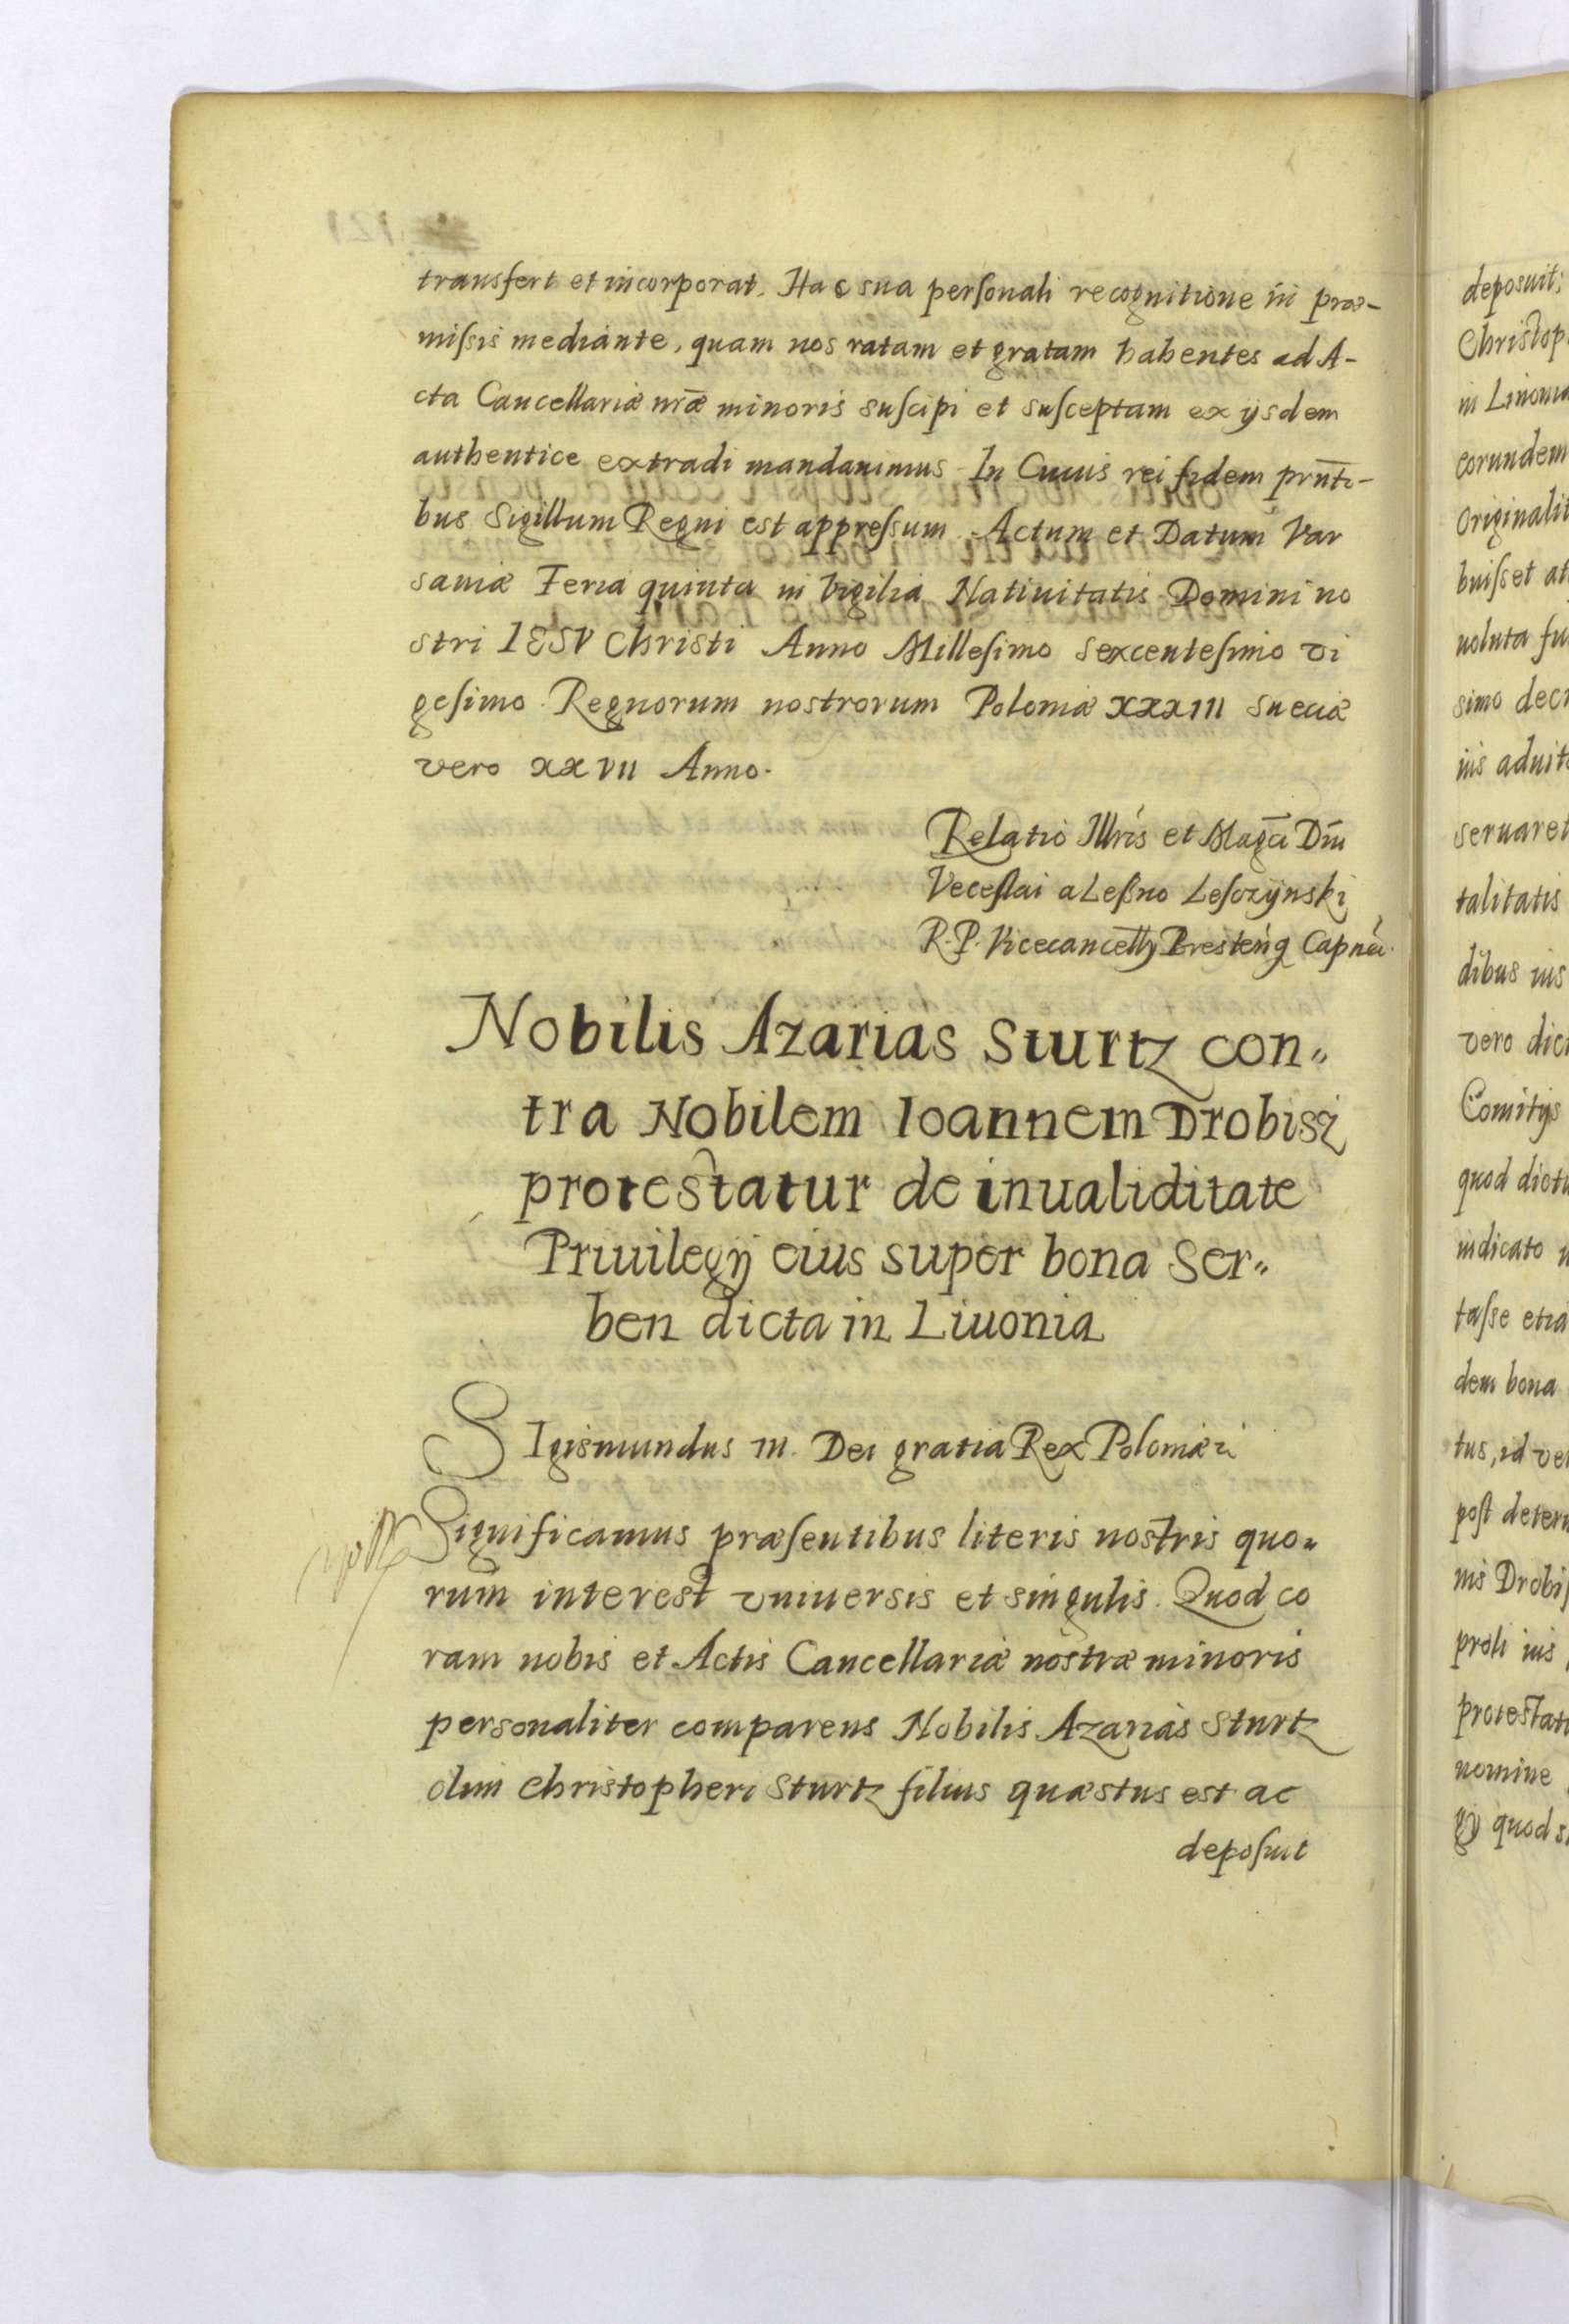 transfert et incorporat. Hac sua personali recognitione in præ-
missis mediante, quam nos ratam et gratam habentes ad A-
cta Cancellariæ nr̃æ minoris suscipi et susceptam ex ijsdem
authentice extradi mandauimus. In Cuius rei fidem pñti-
bus Sigillum Regni est appressum. Actum et Datum Var
sauiæ Feria quinta in Vigilia Natiuitatis Domini no
stri IESV Christi Anno Millesimo sexcentesimo vi
gesimo. Regnorum nostrorum Poloniæ XXXIII Sueciæ
vero XXVII Anno.
Relatio Illris et Magci Dni
Veceslai a Leßno Lesczynski
R. P. Vicecancellij Bresteng Capnei.
Nobilis Azarias Sturtz con„
tra Nobilem Ioannem Drobisz
protestatur de inualiditate
Priuilegij eius super bona Ser„
ben dicta in Liuonia
SIgismundus III. Dei gratia Rex Poloniæ
Significamus præsentibus literis nostris quo„
rum interest vniuersis et singulis. Quod co
ram nobis et Actis Cancellariæ nostræ minoris
personaliter comparens Nobilis Azarias Sturtz
olim Christopheri Sturtz filius quæstus est ac
deposuit
deposuit;
Christop
in Liuonia
eorundem
Originalit
buisset at
uoluta fu
simo deci
ius aduit
seruaret
talitatis
dibus ius
vero dict
Comitijs
quod dictu
indicato
tasse etia
dem bona
tus, id ve
post deter
nis Drobis
proli ius
protestat
nomine
gij quod s